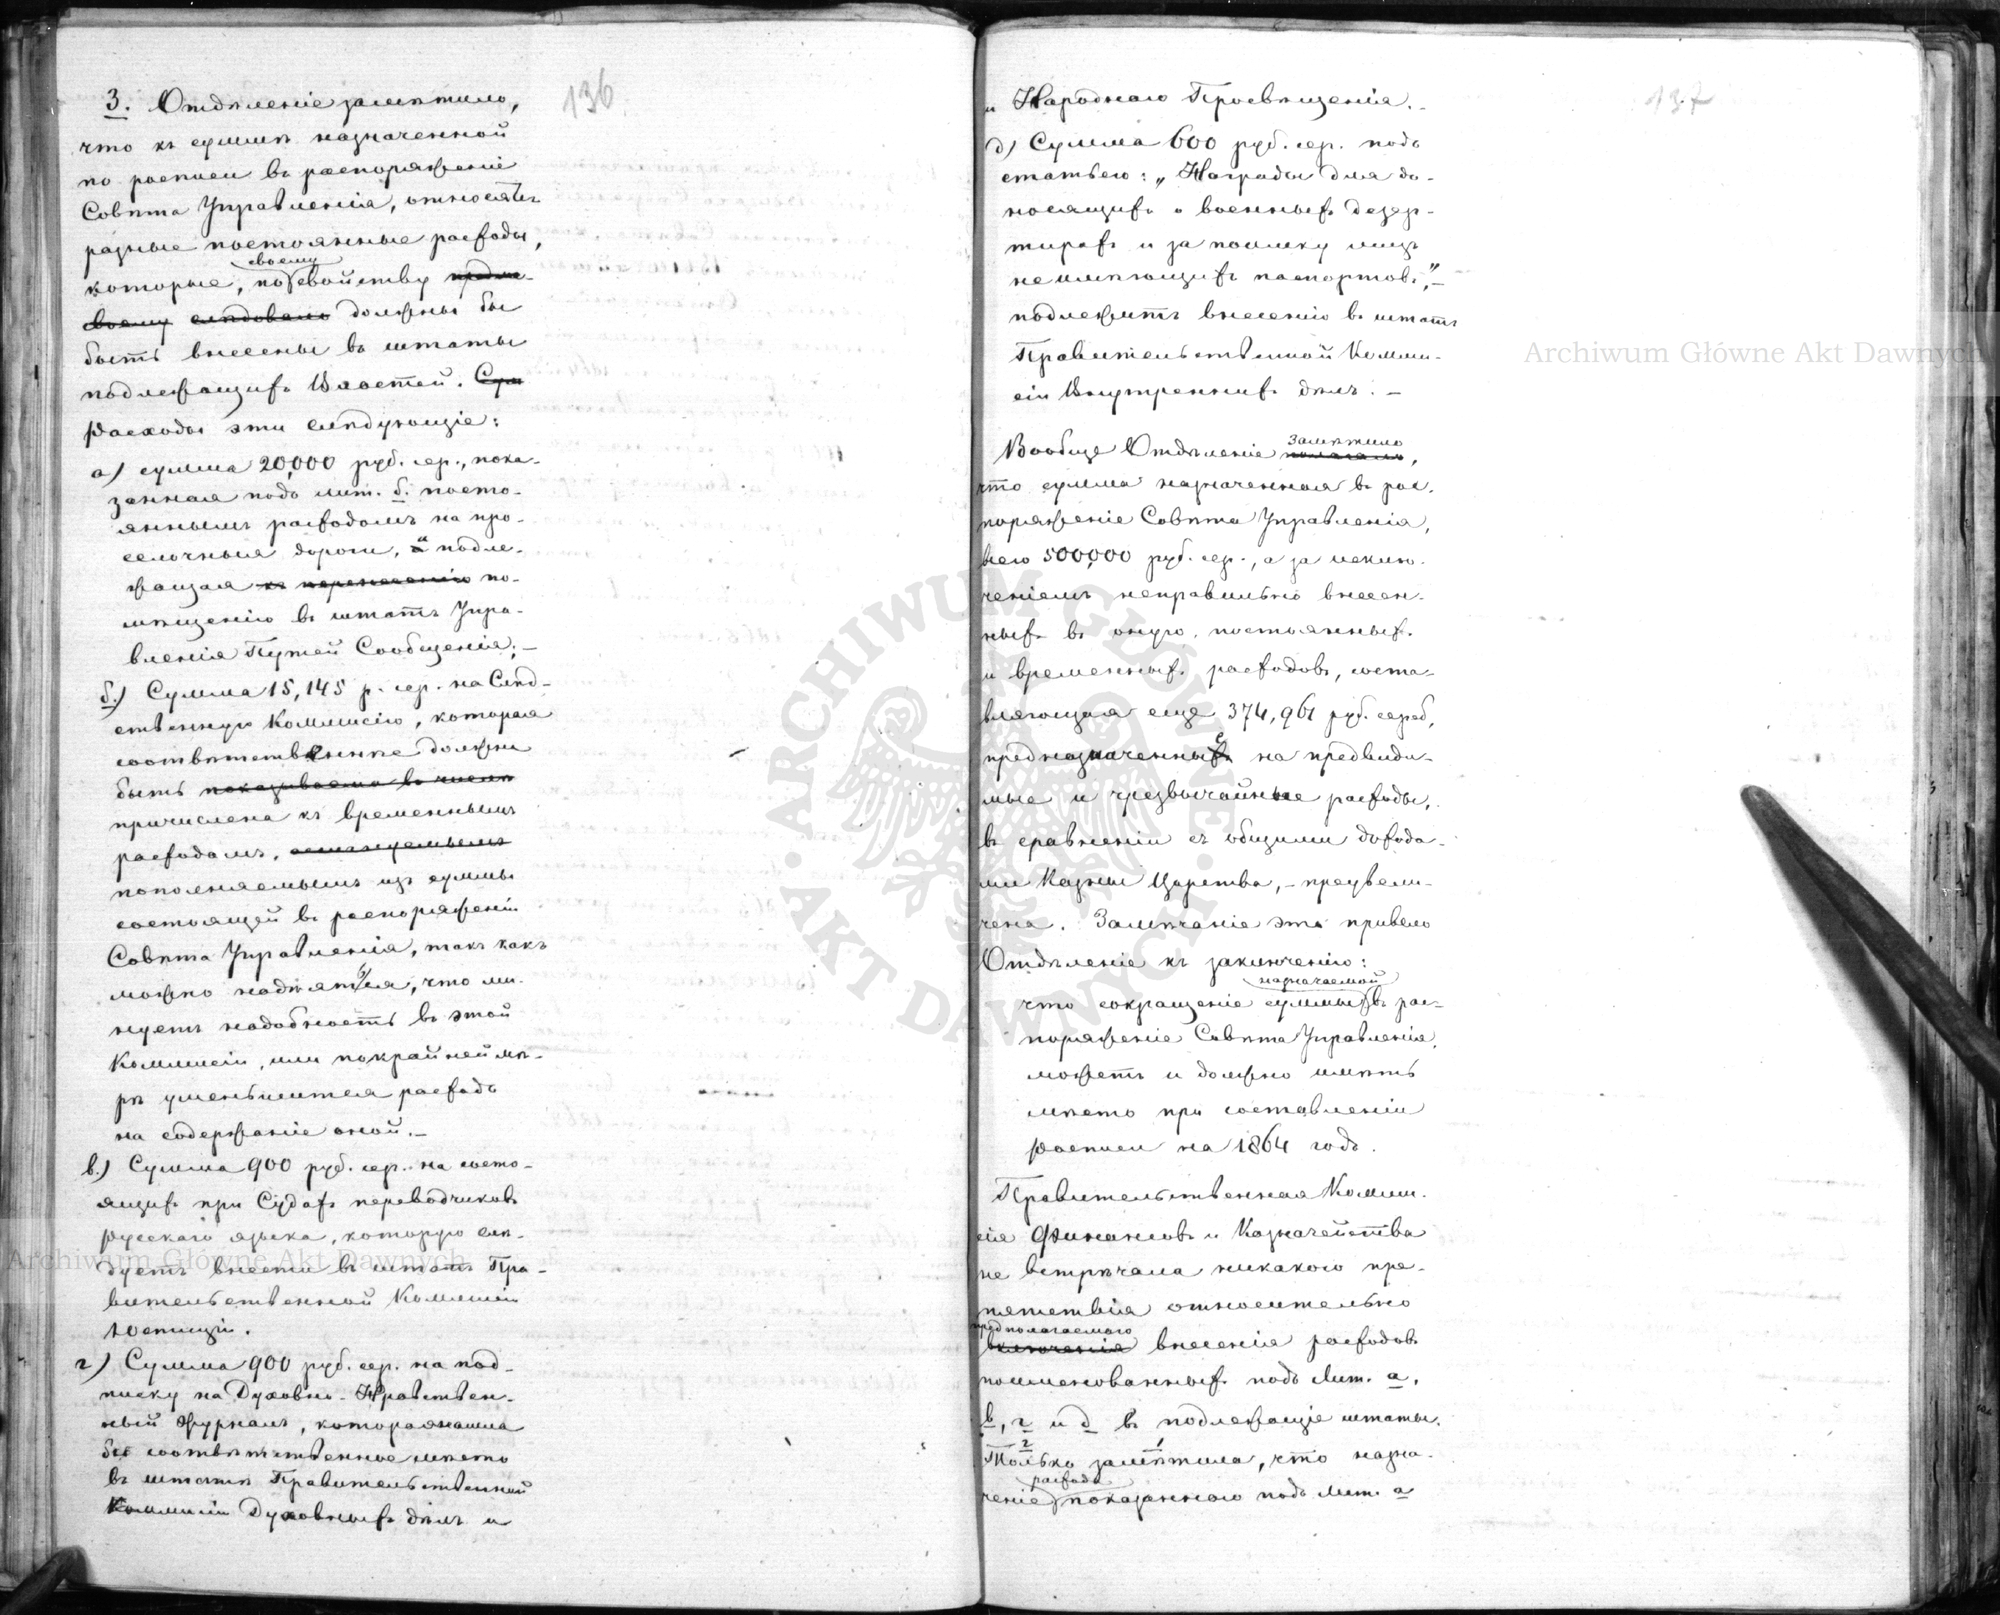 136
3. Отдѣленіе замѣтило,
что къ суммѣ назначенной
по росписи въ распоряженіе
Совѣта Управленія, относятъ
разные постоянные расходы,
своему
которые, по свойству
своему следовало должны бы
быть внесены въ штаты
подлежащихъ Властей. Сум
Расходы эти слѣдующіе:
а) сумма 20,000 руб. сер., пока-
занная подъ лит. б. посто-
яннымъ расходомъ на про-
селочныя дороги, а подле-
жащая къ перенесенію по-
мѣщенію въ штатъ Упра-
вленія Путей Сообщенія;—
б.) Сумма 15,145 р. сер. на Слѣд-
ственную Коммисію, которая
соотвѣтственнѣе должна
быть показываема въ числѣ
причислена къ временнымъ
расходамъ,
пополняемымъ изъ суммы
состоящей въ распоряженіи
Совѣта Управленія, такъ какъ
можно надѣяться, что ми-
нуетъ надобность въ этой
Коммисіи, или покрайней мѣ-
рѣ уменьшится расходъ
на содержаніе оной.—
в.) Сумма 900 руб. сер. на состо-
ящихъ при Судахъ переводчиковъ
русскаго языка, которую слѣ-
дуетъ внести въ штатъ Пра-
вительственной Коммисіи
Юстиціи.
г) Сумма 900 руб. сер. на под-
писку на Духовно-Нравствен-
ный Журналъ, которая нашла
бы соотвѣтственное мѣсто
въ штатѣ Правительственной
Коммисіи Духовныхъ дѣлъ и
137
и Народнаго Просвѣщенія.—
д) Сумма 600 руб. сер. подъ
статьею: „Награды для до-
носящихъ о военныхъ дезер-
тирахъ и за поимку лицъ
неимѣющихъ паспортовъ",—
подлежитъ внесенію въ штатъ
Правительственной Комми-
сіи Внутреннихъ дѣлъ.—
замѣтило
Вообще Отдѣленіе полагало,
что сумма назначенная въ рас-
поряженіе Совѣта Управленія,
всего 500,000 руб. сер., а за исклю-
ченіемъ неправильно внесен-
ныхъ въ оную, постоянныхъ
и временныхъ расходовъ, соста-
вляющая еще 374,961 руб. сереб,
предназначенные на предвиди-
мые и чрезвычайные расходы,
въ сравненіи съ общими дохода-
ми Казны Царства,—преувели-
чена. Замѣчаніе это привело
Отдѣленіе къ заключенію:
назначаемой
что сокращеніе суммы въ рас-
поряженіе Совѣта Управленія,
можетъ и должно имѣть
мѣсто при составленіи
росписи на 1864 годъ.
Правительственная Комми-
сія Финансовъ и Казначейства
не встрѣчала никакого пре-
пятствія относительно
предполагаемаго
включенія внесенія расходовъ
поименованныхъ подъ Лит. а,
в, г и д въ подлежащіе штаты.
2 1
Только замѣтила, что назна-
расхода
ченіе показаннаго подъ Лит. а
Archiwum Główne Akt Dawnych
Archiwum Główne Akt Dawnych
ARCHIWUM GŁÓWNE · AKT DAWNYCH ·